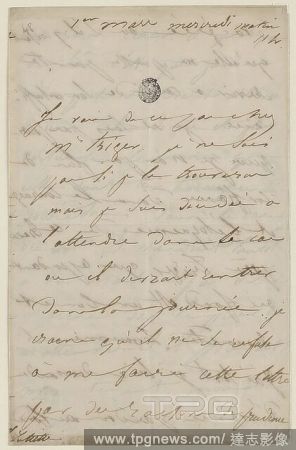 1er mars mercredi matin
11 h
Je vais de ce pas chez
Mr Triger, je ne sais
pas si je le trouverai
mais je suis décidée à
l'attendre dans le cas
où il devrait rentrer
dans la journée. je
crains qu'il ne se refuse
à me faire cette lettre
par des raisons de prudence
TPG
www.tpgnews.com / 達志影像